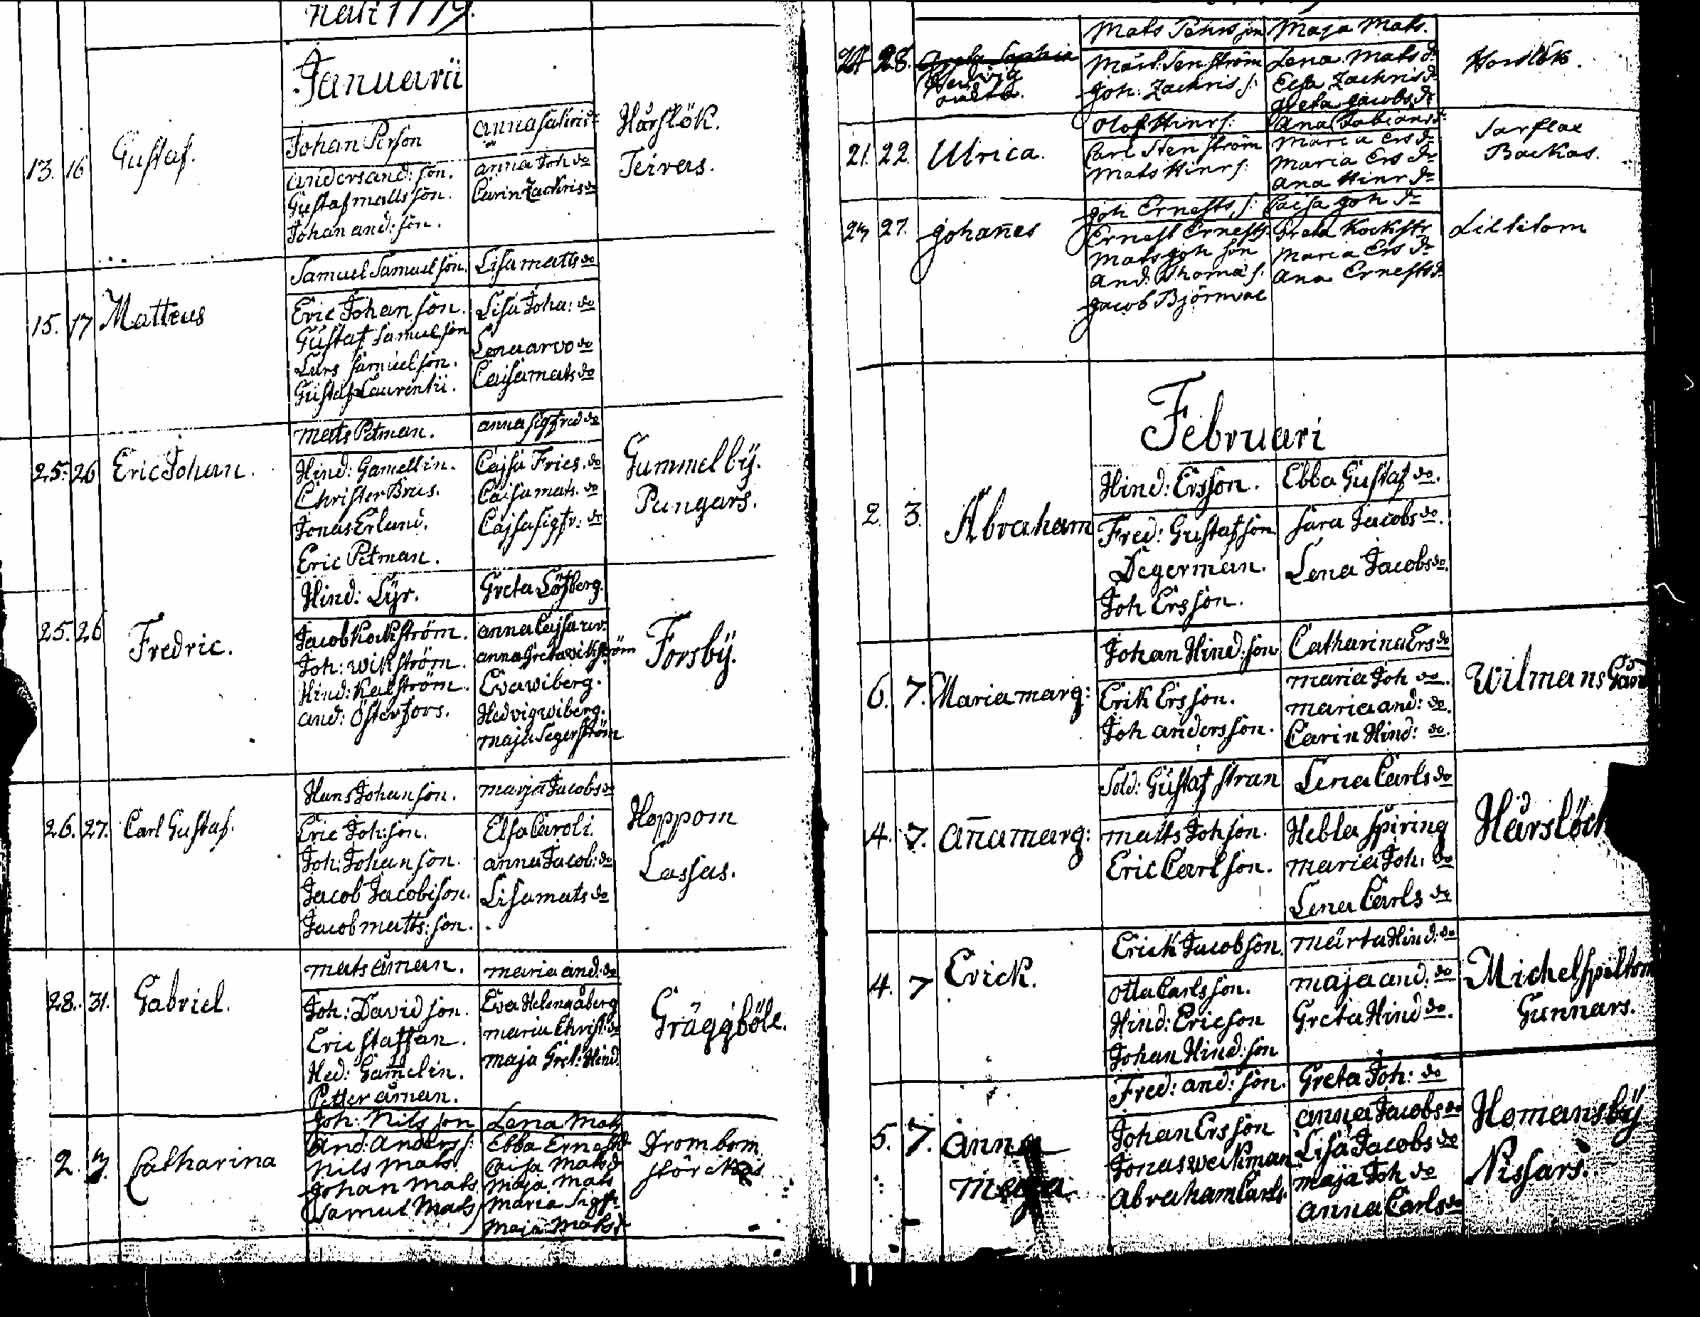 Januarii
13. 16 Gustaf.
Johan Pirson
anders and: son.
Gustaf matts son.
Johan and: son.
anna
anna Joh do
Carin Zachris do
Hårslök.
Teivars.
15. 17 Matteus
Samuel Samuel son.
Eric Johan son.
Gustaf Samuel son
Lars Samuel son.
Gustaf Laurentii.
Lisa matts do
Lisa Joha: do
Lena arvo do
Caisa mats do
25. 26 Eric Johan.
mats Petman.
Hind: Gamellin.
Christer Brus.
Jonas Erlund.
Eric Petman.
anna sigfred do
Cajsa Fries. do
Caisa mats. do
Cajsa sigfr: do
Gummelbÿ.
Pungars.
25. 26 Fredric.
Hind: Lÿr.
Jacob Kockström.
Joh: wikström.
Hind: Kalström.
and: Österfors.
Greta Löfberg.
anna Cajsa
anna Greta wikström
Eva wiberg.
Hedvig wiberg.
maja Segerström
Forsbÿ.
26. 27. Carl Gustaf.
Hans Johan son.
Eric Joh: son.
Joh: Johan son.
Jacob Jacobison.
Jacob matts: son.
marja Jacobs do
Elsa Caroli
anna Jacob: do
Lisa mats do
Hoppom
Lassas.
28. 31. Gabriel.
mats åman.
Joh: David son.
Eric staffan.
Hed: Gamelin.
Petter åman.
maria and: do
Eva Helena åberg
maria Christ: do
maja Gret: Hind
Gräggböle.
2. Catharina
Joh: Nils son
And. Anders s:
Nils Mats
Johan Mats
Samuel Mats
Lena Mats
Ebba Ernst
Caisa Mats d
Maja Mats
Maria Sigf
Maja Mats d
Drombom
28.
Mats Pehrs son
Mårt. Senström
Joh: Zachris s:
Maja Mats.
Lena Mats dr
Elsa Zachris dr
Greta Jacobs dr
21. 22. Ulrica.
Olof Hinr s:
Carl Stenström
Mats Hinr s:
Ana Fabians dr
Maria Ers dr
Maria Ers dr
Ana Hinr dr
Sarflax
Backas.
27. Johañes
Joh Ernests s:
Ernest Ernests
Mats Joh son
And. Thomas s:
Jacob Björnvac
Caisa Joh dr
Greta Kockstr
Maria Ers dr
Ana Ernests d
Liltitom
Februari
2. 3. Abraham
Hind: Ersson.
Fred: Gustaf son
Degerman.
Joh Ersson.
Ebba Gustaf do.
Sara Jacobs do.
Lena Jacobs do.
6. 7. Maria marg:
Johan Hind: son
Erik Ersson.
Joh anders son.
Catharina Ers do
maria Joh do.
maria and: do.
Carin Hind: do.
Wilmans
4. 7. añamarg:
Sold: Gustaf stran
matts Joh son.
Eric Carl son.
Lena Carls do
Hebla spiring
maria Joh: do
Lena Carls do
4. 7 Erick.
Erick Jacobson.
Otta Carls son.
Hind: Ericson
Johan Hind: son
märta Hind: do
maja and: do
Greta Hind do.
Michelspiltom
Gunnars.
5. 7. anna
maja
Fred: and: son.
Johan Ersson
Jonas weikman
Abraham Carls
Greta Joh: do
anna Jacobs do
Lisa Jacobs do
maja Joh do
anna Carls do
Homansbÿ
Nissars.